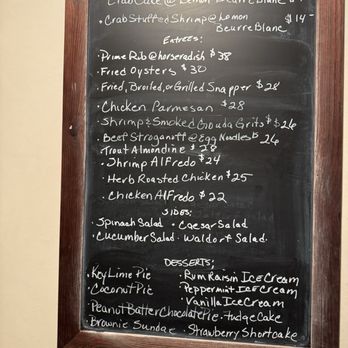 Crab Cake @ Lemon Beurre Blanc
• Crab Stuffed Shrimp @ Lemon $14-
Beurre Blanc
Entrees:
• Prime Rib @ horseradish $38
• Fried Oysters $30
• Fried, Broiled, or Grilled Snapper $28
• Chicken Parmesan $28
• Shrimp & Smoked Gouda Grits $26
• Beef Stroganoff @ Egg Noodles $26
Trout Almondine $28
• Shrimp Alfredo $24
• Herb Roasted Chicken $25
• Chicken Alfredo $22
Sides:
• Spinach Salad • Caesar Salad
• Cucumber Salad • Waldorf Salad
Desserts:
• Key Lime Pie • Rum Raisin Ice Cream
• Coconut Pie • Peppermint Ice Cream
• Vanilla Ice Cream
• Peanut Butter Chocolate Pie • Fudge Cake
• Brownie Sundae • Strawberry Shortcake